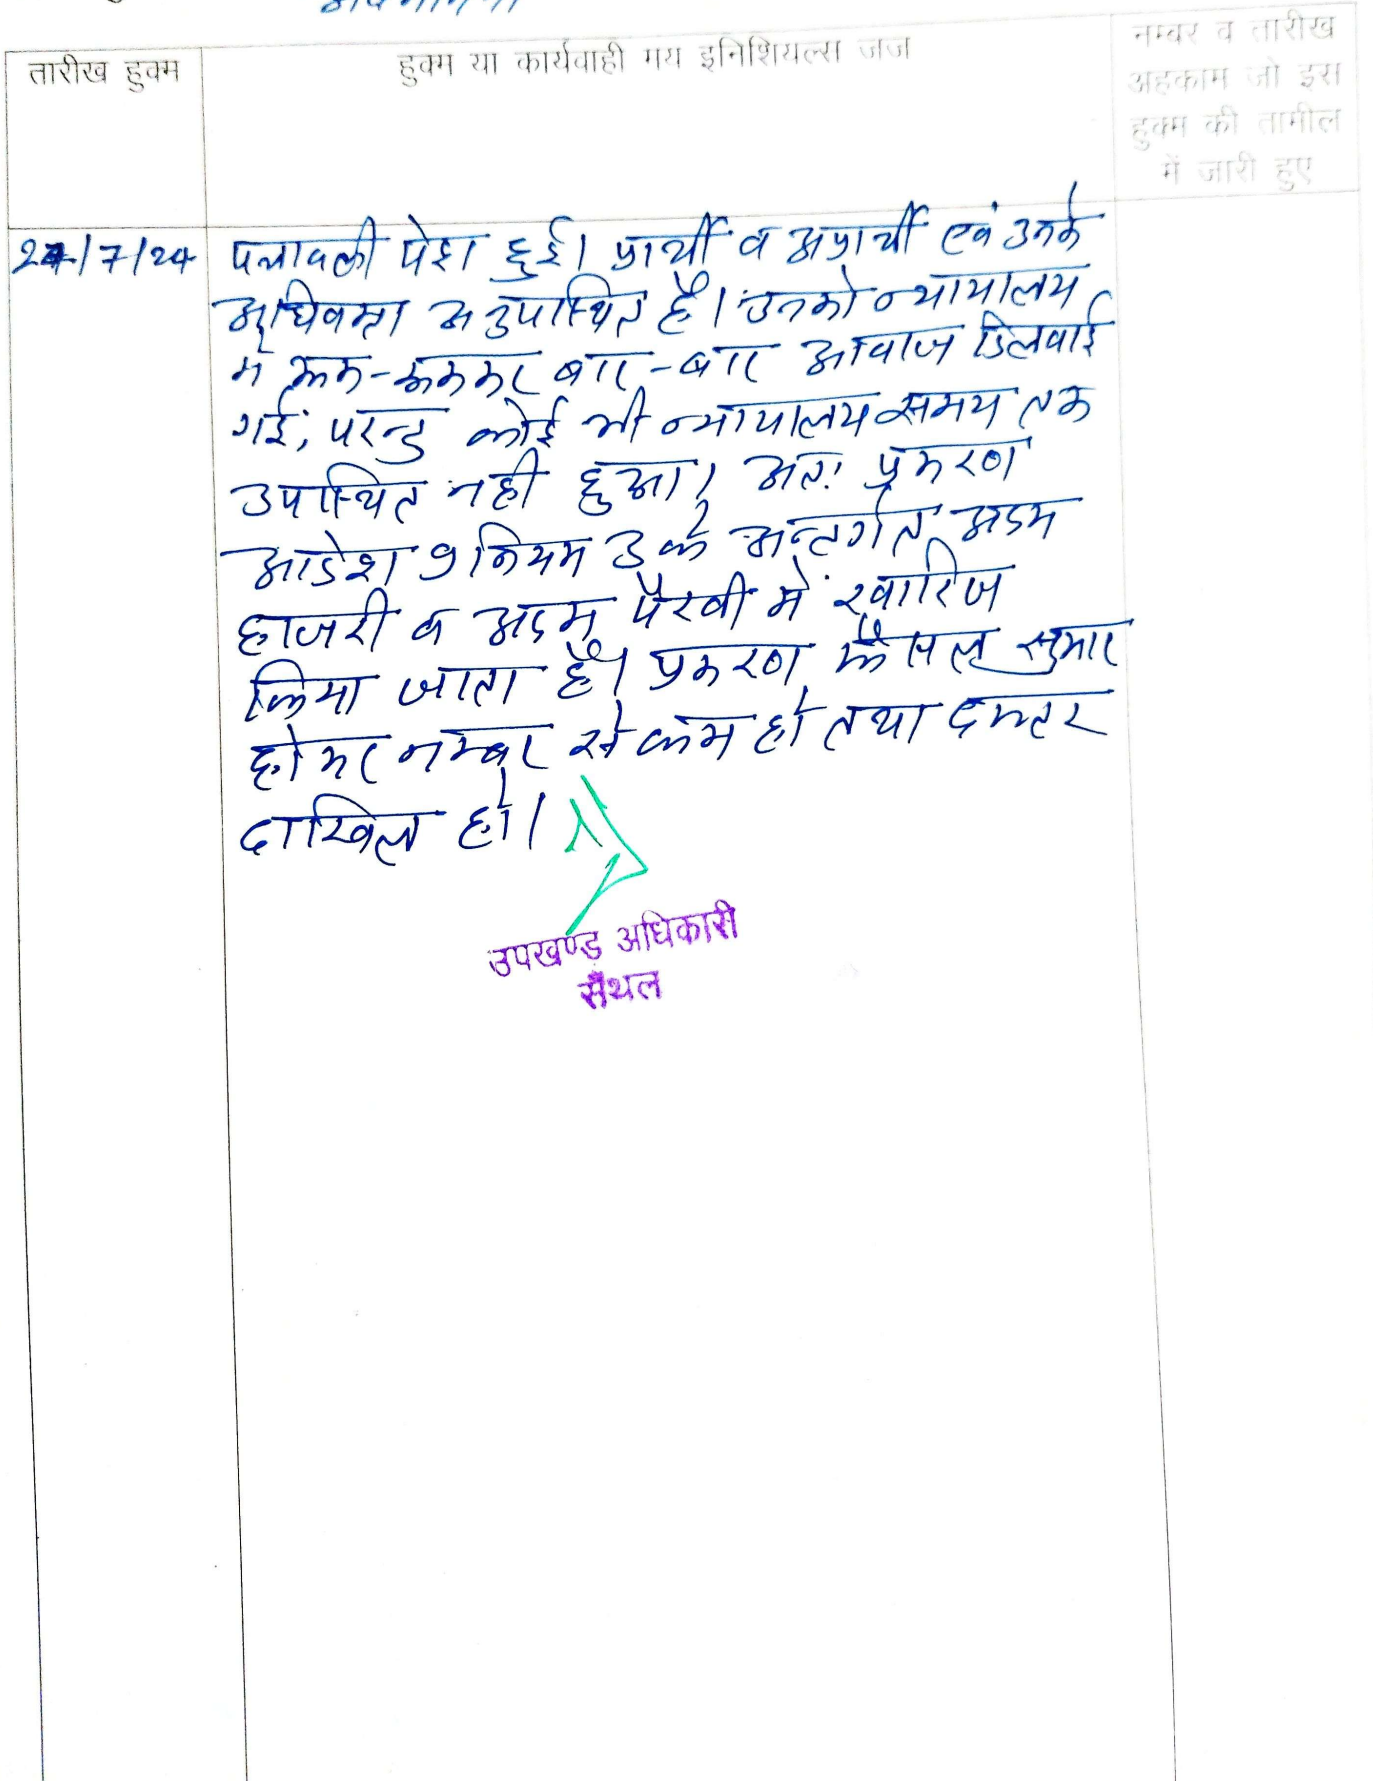 तारीख हुक्म
हुक्म या कार्यवाही मय इनिशियल्स जज
नम्बर व तारीख
अहकाम जो इस
हुक्म की तामील
में जारी हुए
24/7/24
पत्रावली पेश हुई। प्रार्थी व अप्रार्थी एवं उनके
अधिवक्ता अनुपस्थित है। उनको न्यायालय
में रूक-रूककर बार-बार आवाज दिलवाई
गई, परन्तु कोई भी न्यायालय समय तक
उपस्थित नही हुआ। अतः प्रकरण
आदेश 9 नियम 3 के अन्तर्गत अदम
हाजरी व अदम पैरवी में खारिज
किया जाता है। प्रकरण फैसल सुमार
होकर नम्बर से कम हो तथा दफ्तर
दाखिल हो।
उपखण्ड अधिकारी
सैंथल